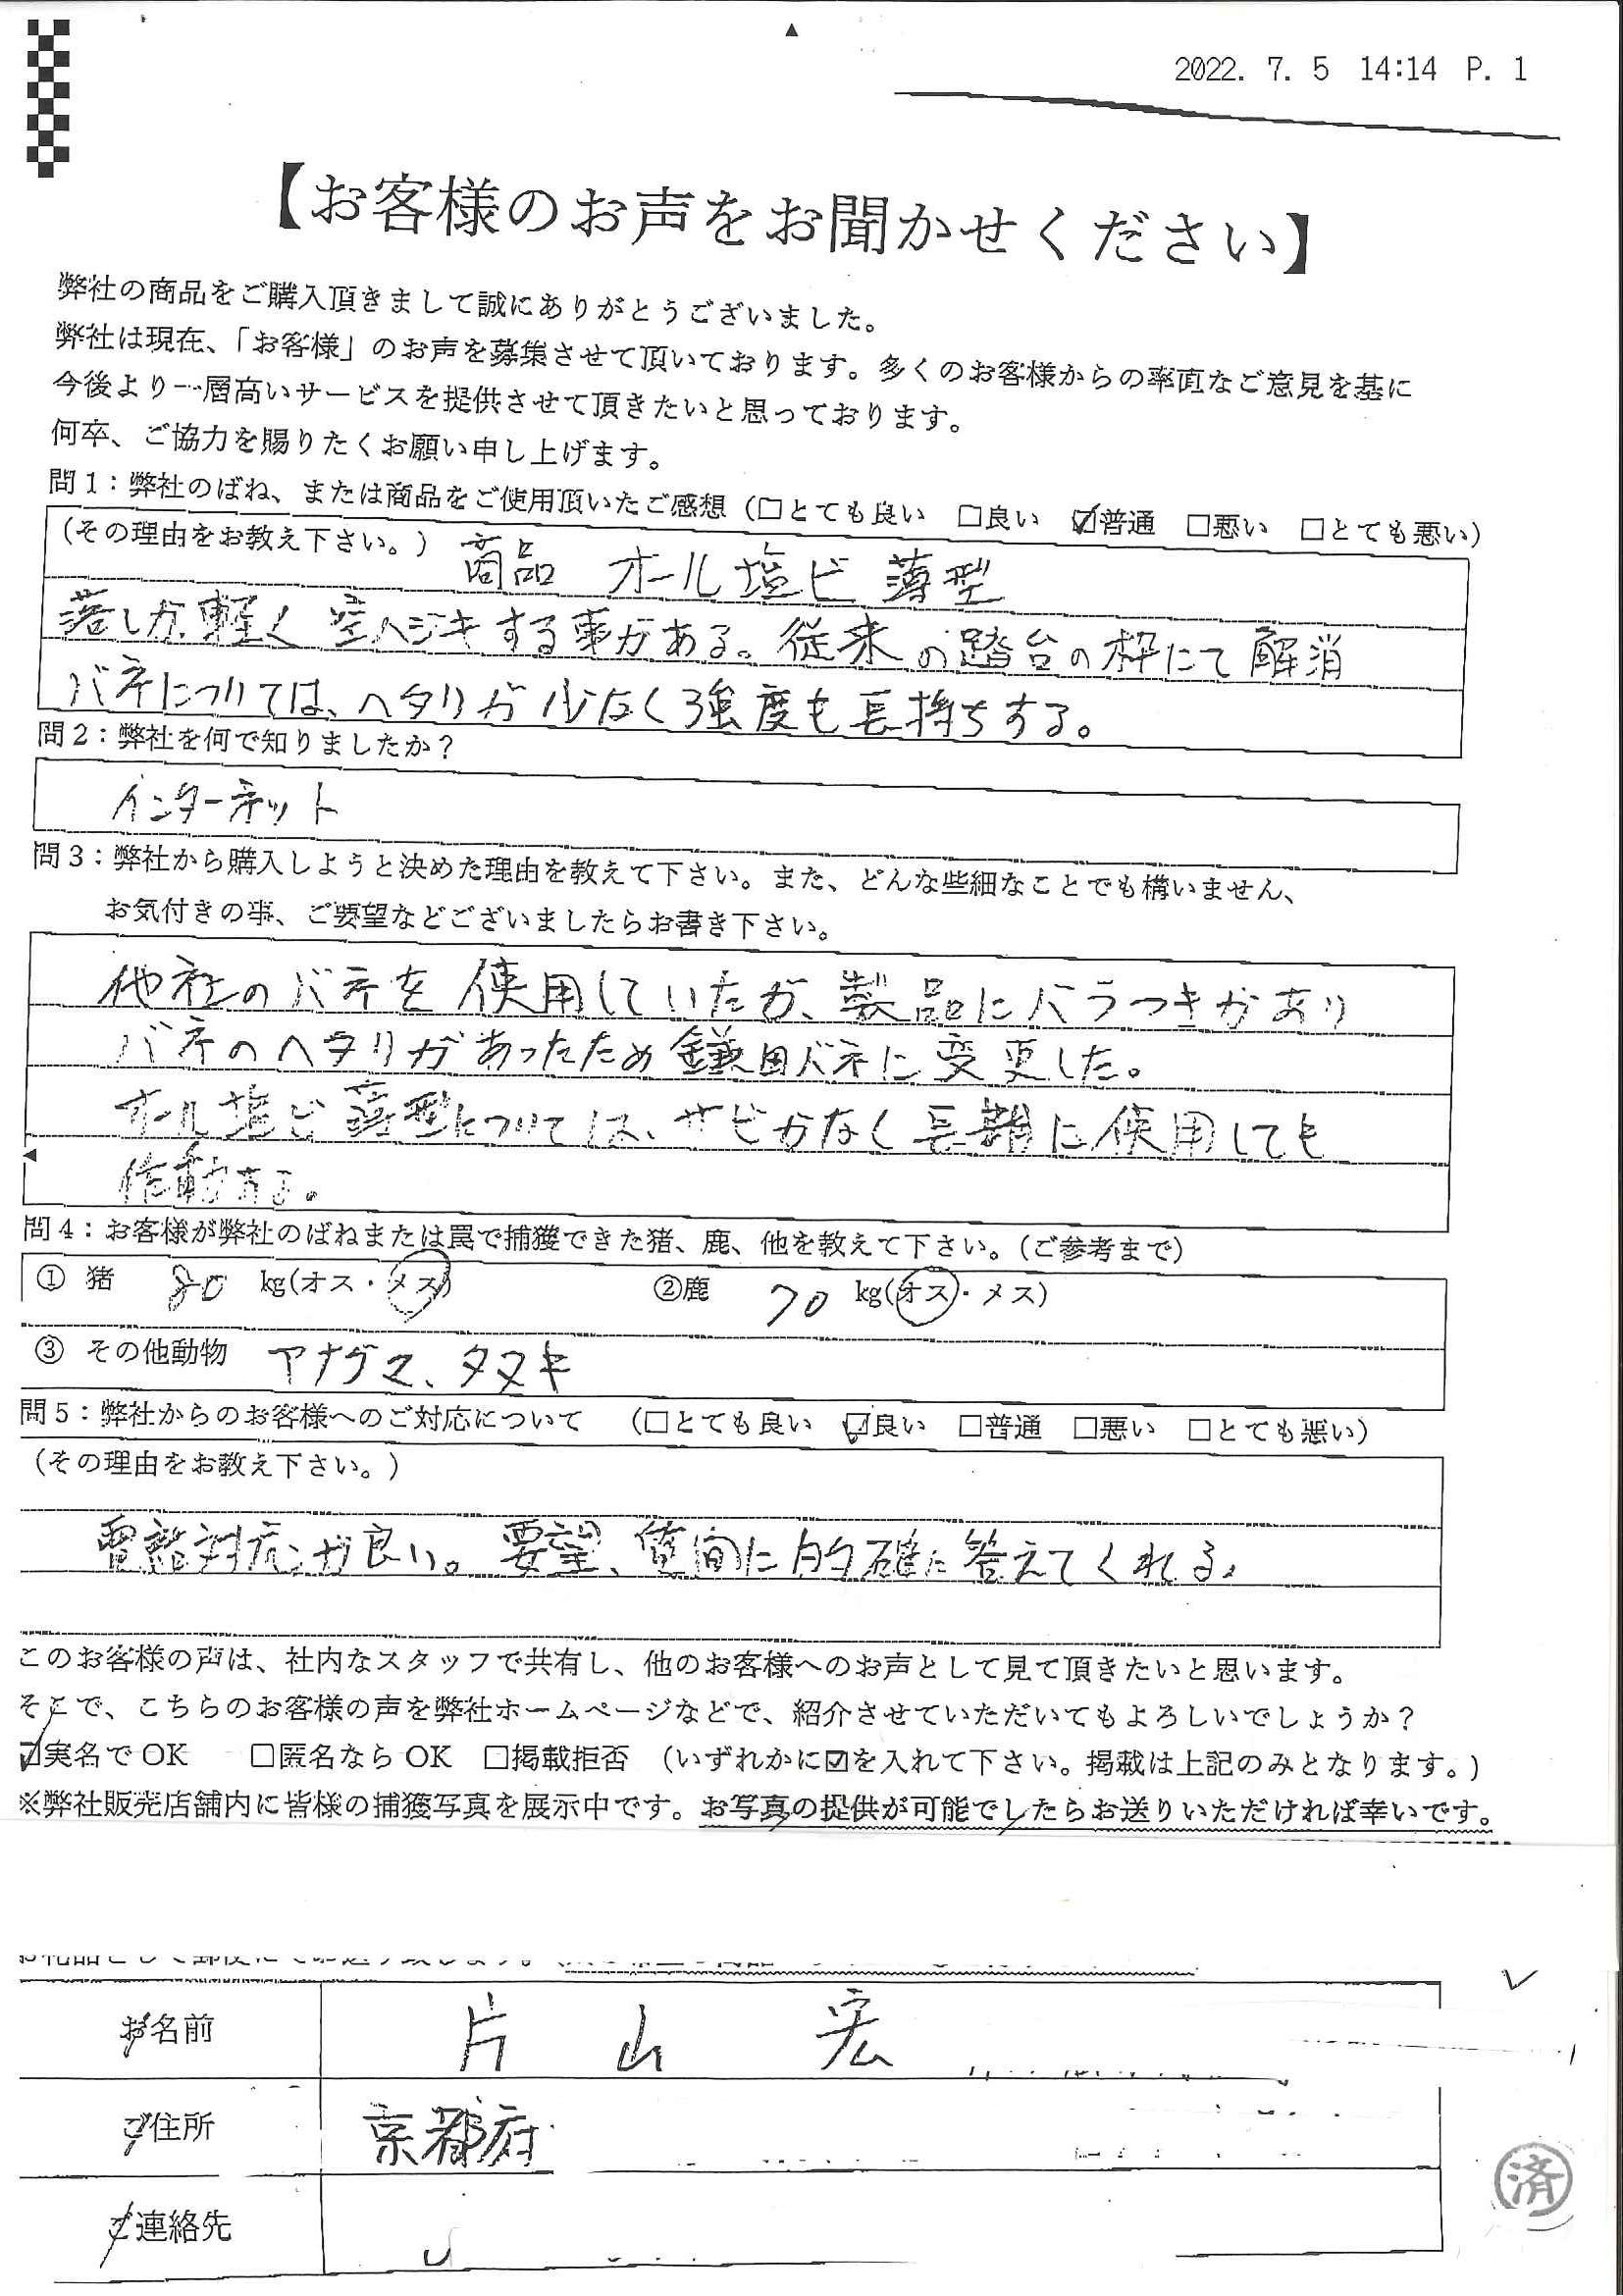 2022. 7. 5 14:14 P. 1
【お客様のお声をお聞かせください】
弊社の商品をご購入頂きまして誠にありがとうございました。
弊社は現在、「お客様」のお声を募集させて頂いております。多くのお客様からの率直なご意見を基に
今後より一層高いサービスを提供させて頂きたいと思っております。
何卒、ご協力を賜りたくお願い申し上げます。
問1：弊社のばね、または商品をご使用頂いたご感想（□とても良い □良い ☑普通 □悪い □とても悪い）
（その理由をお教え下さい。） 商品 オール塩ビ 薄型
落しが軽く空ハジキする事がある。従来の踏台の枠にて解消
バネについては、ヘタリが少なく強度も長持ちする。
問2：弊社を何で知りましたか？
インターネット
問3：弊社から購入しようと決めた理由を教えて下さい。また、どんな些細なことでも構いません、
お気付きの事、ご要望などございましたらお書き下さい。
他社のバネを使用していたが、製品にバラつきがあり
バネのヘタリがあったため鎌田バネに変更した。
オール塩ビ薄型については、サビがなく長期に使用しても
作動する。
問4：お客様が弊社のばねまたは罠で捕獲できた猪、鹿、他を教えて下さい。（ご参考まで）
① 猪 80 kg(オス・メス) ②鹿 70 kg(オス・メス)
③ その他動物 アナグマ、タヌキ
問5：弊社からのお客様へのご対応について （□とても良い ☑良い □普通 □悪い □とても悪い）
（その理由をお教え下さい。）
電話対応が良い。要望、質問に的確に答えてくれる。
このお客様の声は、社内なスタッフで共有し、他のお客様へのお声として見て頂きたいと思います。
そこで、こちらのお客様の声を弊社ホームページなどで、紹介させていただいてもよろしいでしょうか？
☑実名でOK □匿名ならOK □掲載拒否 （いずれかに☑を入れて下さい。掲載は上記のみとなります。）
※弊社販売店舗内に皆様の捕獲写真を展示中です。お写真の提供が可能でしたらお送りいただければ幸いです。
お名前 片山 宏
ご住所 京都府
ご連絡先
済